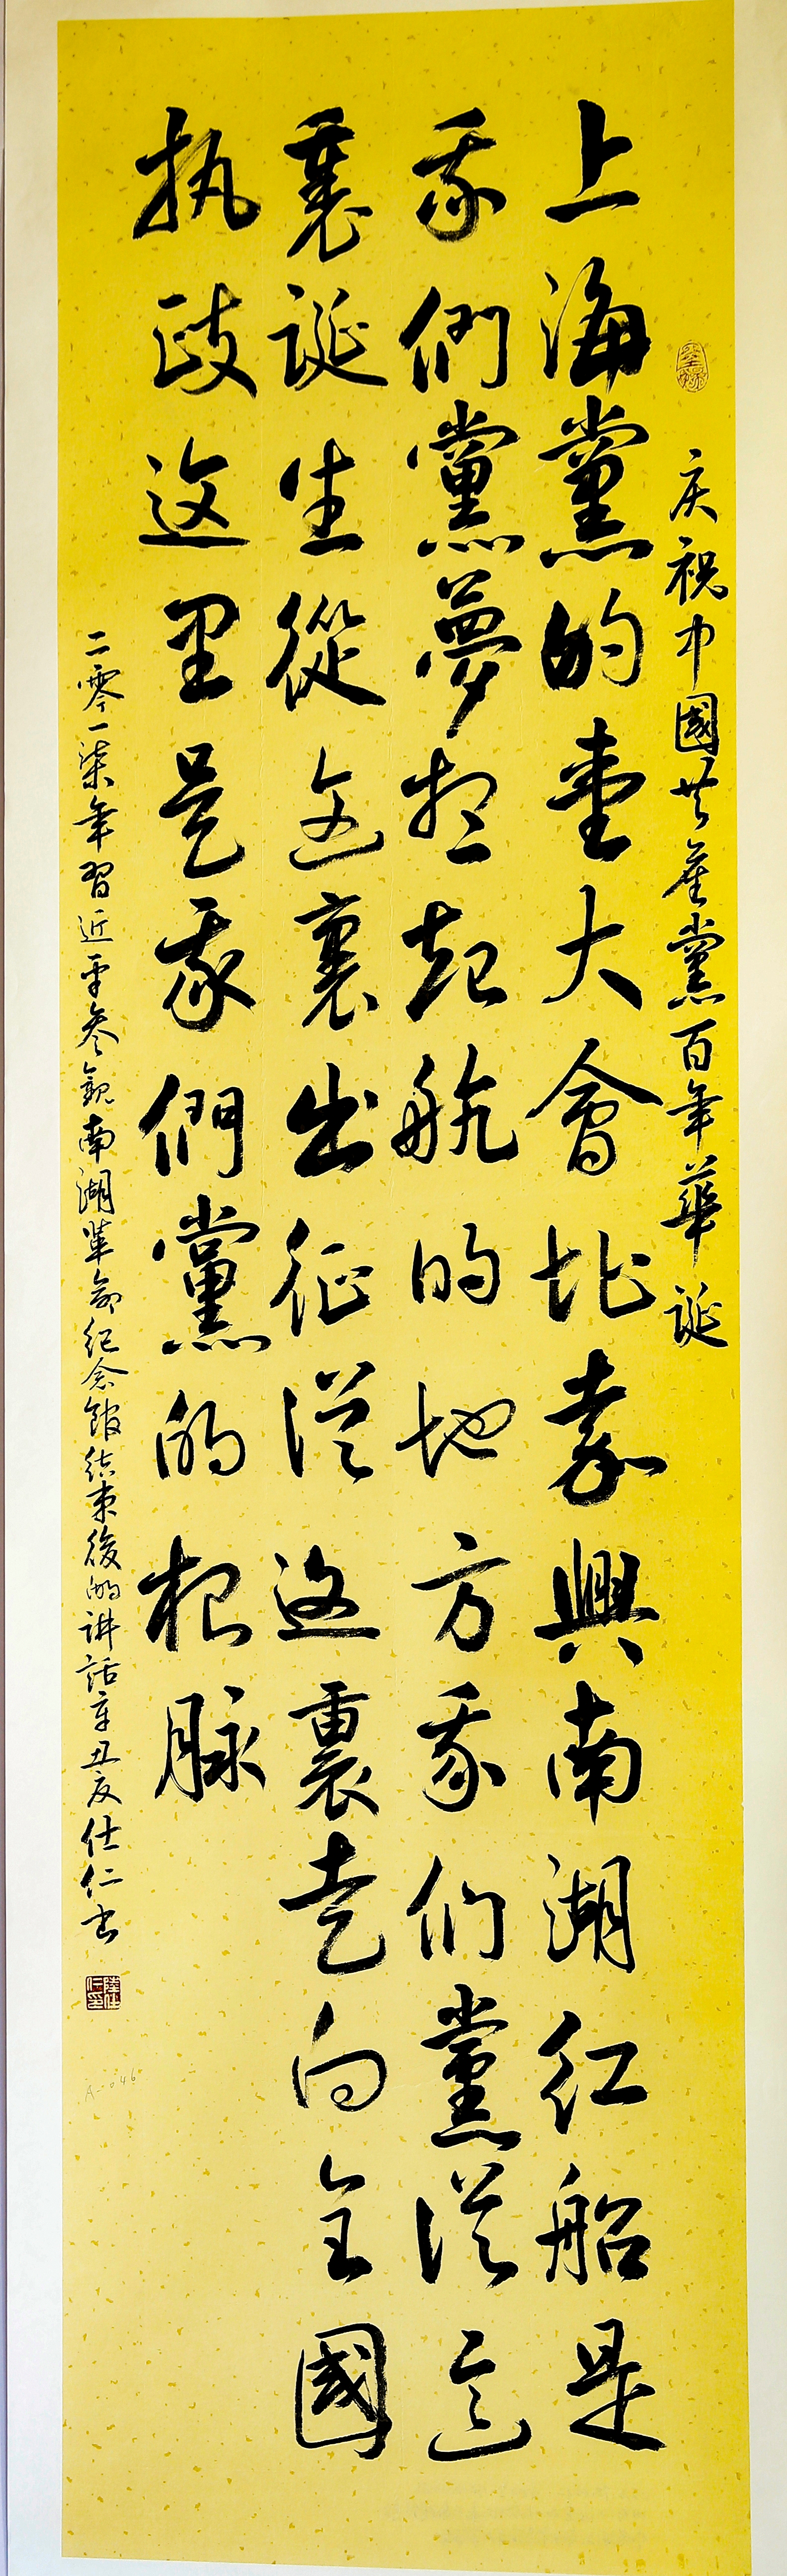 庆祝中國共產黨百年華誕
上海黨的壹大會址嘉興南湖红船是
我們黨夢想起航的地方我们黨從这
裏誕生從这裏出征從这裏走向全國
执政这里是我們黨的根脉
二零一柒年習近平参觀南湖革命纪念館结束後的讲話辛丑夏仕仁书
A-046